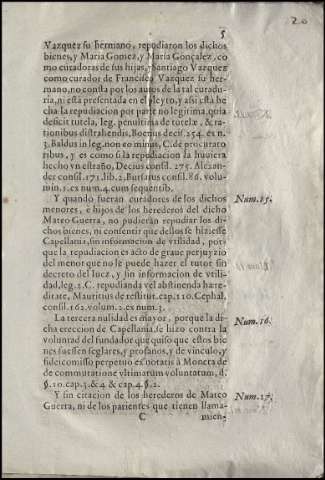 20
5
Vazquez su hermano, repudiaron los dichos
bienes, y Maria Gomez, y Maria Gonçalez, co
mo curadoras de sus hijas, y Santiago Vazquez
como curador de Francisca Vazquez su her-
mano, no consta por los autos de la tal curadu-
ria, ni està presentada en el pleyto, y assi està he
cha la repudiacion por parte no legitima, quia
deficit tutela, leg. penultima de tutelæ, & ra-
tionibus distrahendis, Boerius decis. 254. ex n.
3. Baldus in leg. non eo minus, C. de procurato
ribus, y es como si la repudiacion la huuiera
hecho vn estraño, Decius consil. 275. Alexan-
der consil. 171. lib. 2. Bursatus consil. 86. volu-
min. 1. ex num. 4. cum sequentib.
Y quando fueran curadores de los dichos
Num. 15.
menores, e hijos de los herederos del dicho
Mateo Guerra, no pudieran repudiar los di-
chos bienes, ni consentir que dellos se hiziesse
Capellania, sin informacion de vtilidad, por-
que la repudiacion es acto de graue perjuyzio
del menor que no le puede hazer el tutor sin
decreto del Iuez, y sin informacion de vtili-
dad, leg. 1. C. repudianda vel abstinenda hære-
ditate, Mauritius de restitut. cap. 110. Cephal.
consil. 162. volum. 2. ex num. 3.
La tercera nulidad es mayor, porque la di-
Num. 16.
cha ereccion de Capellania, se hizo contra la
voluntad del fundador que quiso que estos bie
nes fuessen seglares, y profanos, y de vinculo, y
fideicomisso perpetuo ex notatis à Moneta de
de commutatione vltimarum voluntatum, d.
§. 10. cap. 3. & 4 & cap. 4. §. 2.
Y sin citacion de los herederos de Mateo
Num. 17.
Guerra, ni de los parientes que tienen llama-
C
mien-